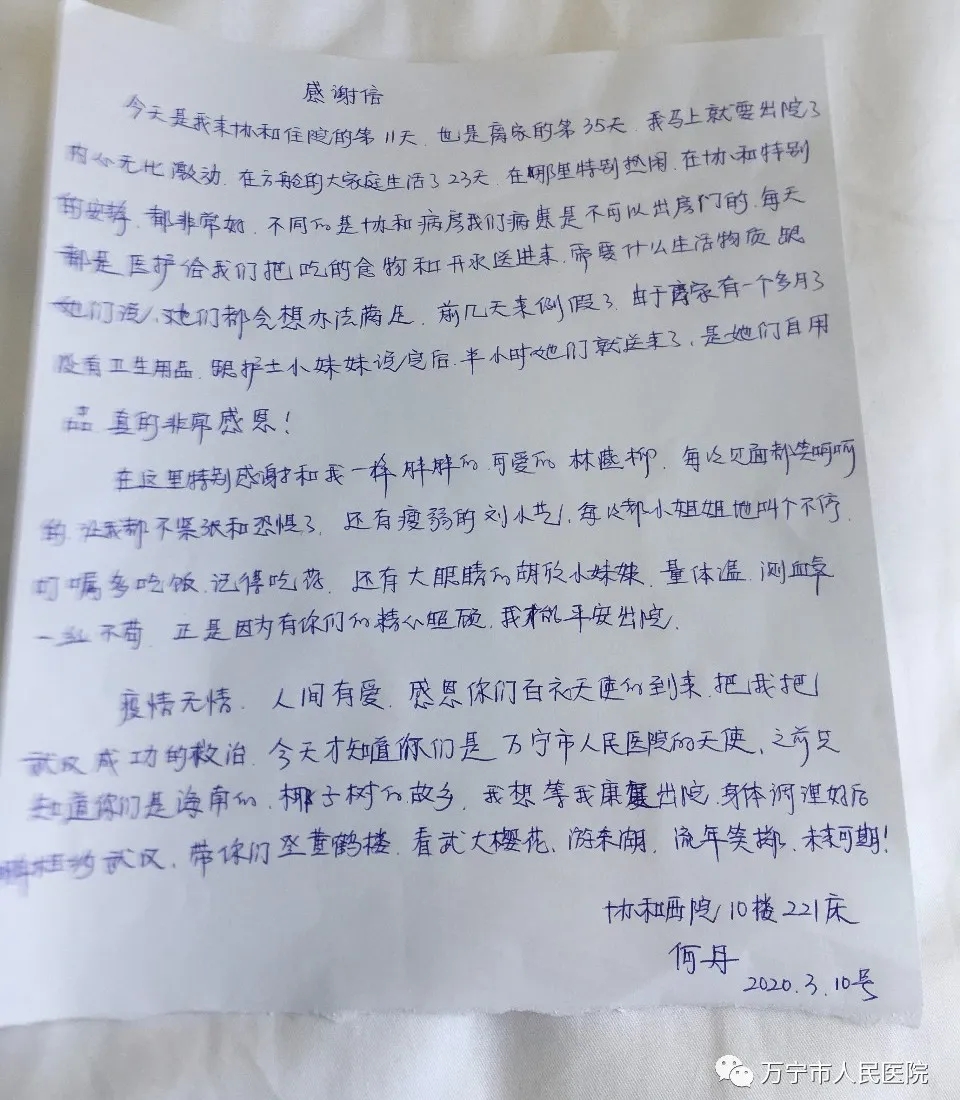 感谢信
今天是我来协和住院的第11天.也是离家的第35天.我马上就要出院了
内心无比激动.在方舱的大家庭生活了23天.在哪里特别热闹.在协和特别
的安静.都非常好.不同的是协和病房我们病患是不可以出房门的.每天
都是医护给我们把吃的食物和开水送进来.需要什么生活物质跟
她们说,她们都会想办法满足.前几天来例假了.由于离家有一个多月了
没有卫生用品.跟护士小妹妹说完后.半小时她们就送来了,是她们自用
品.真的非常感恩!
在这里特别感谢和我一样胖胖的可爱的林 柳.每次见面都笑呵呵
的.让我都不紧张和恐惧了.还有瘦弱的刘小 .每次都小姐姐地叫个不停.
叮嘱多吃饭.记得吃药.还有大眼睛的胡欣小妹妹.量体温.测血氧
一丝不苟.正是因为有你们的精心照顾.我才能平安出院.
疫情无情.人间有爱.感恩你们白衣天使的到来.把我把
武汉成功的救治.今天才知道你们是万宁市人民医院的天使,之前只
知道你们是海南的.椰子树的故乡,我想等我康复出院.身体调理好后
武汉,带你们登黄鹤楼.看武大樱花,游东湖,流年笑掷,未来可期!
协和西院10楼221床
何丹
2020.3.10号
万宁市人民医院